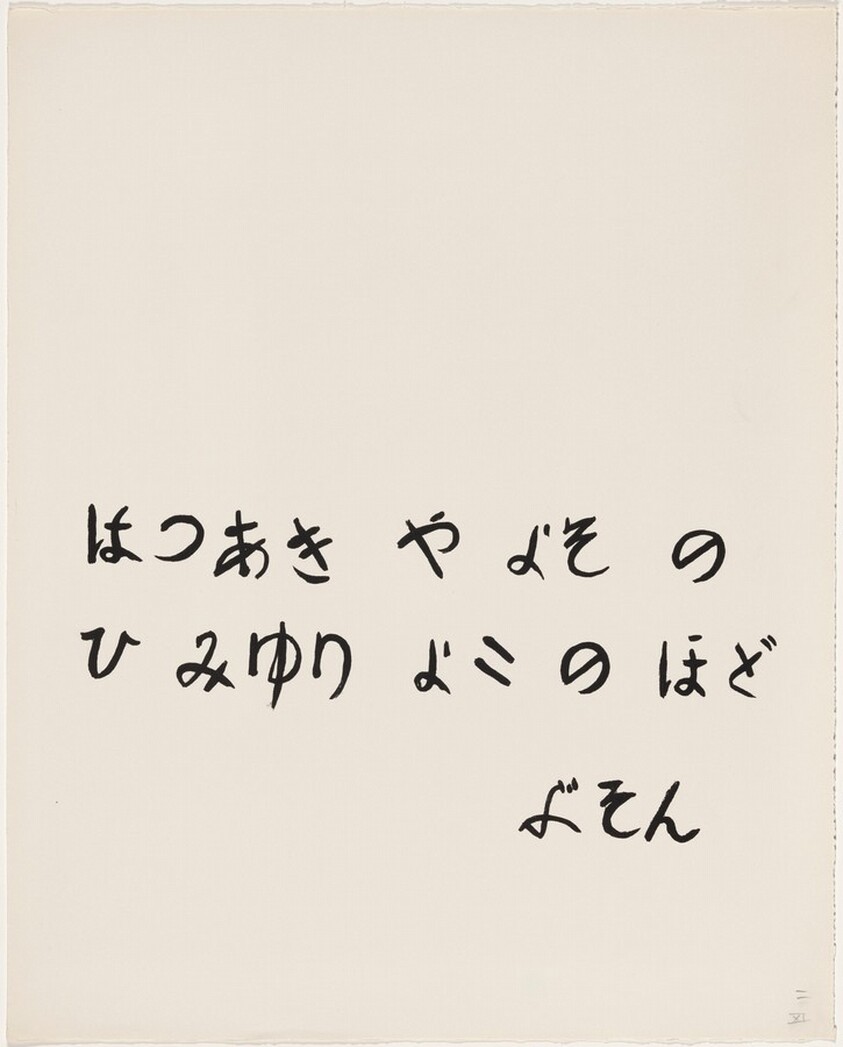 はつあき や よそ の
ひ みゆり よい の ほど
ぶそん
二
VI